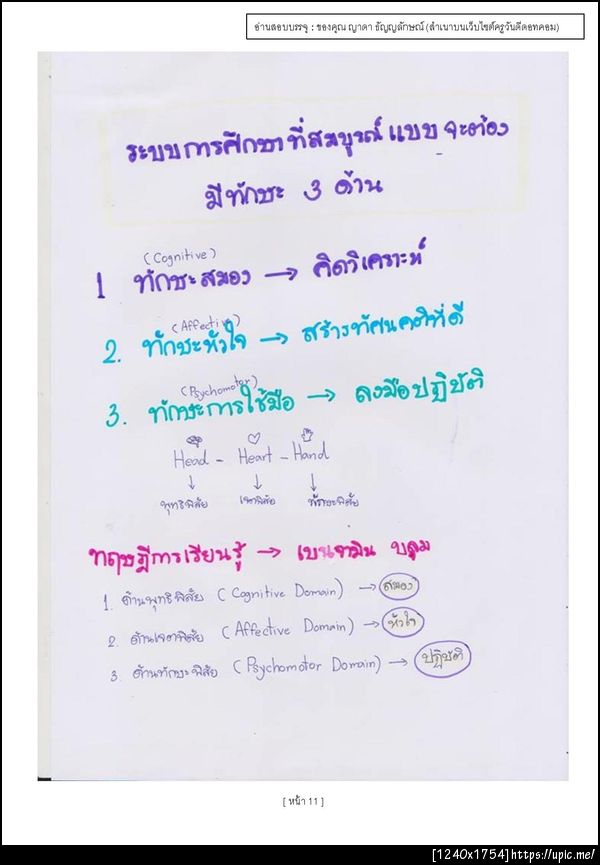 อ่านสอบบรรจุ : ของคุณ ญาดา ธัญญลักษณ์ (สำเนาบนเว็บไซต์ครูวันดีดอทคอม)
ระบบการศึกษาที่สมบูรณ์แบบ จะต้อง
มีทักษะ 3 ด้าน
(Cognitive)
1 ทักษะสมอง → คิดวิเคราะห์
(Affective)
2. ทักษะหัวใจ → สร้างทัศนคติที่ดี
(Psychomotor)
3. ทักษะการใช้มือ → ลงมือปฏิบัติ
Head - Heart - Hand
↓ ↓ ↓
พุทธิพิสัย เจตพิสัย ทักษะพิสัย
ทฤษฎีการเรียนรู้ → เบนจามิน บลูม
1. ด้านพุทธิพิสัย (Cognitive Domain) → สมอง
2. ด้านเจตพิสัย (Affective Domain) → หัวใจ
3. ด้านทักษะพิสัย (Psychomotor Domain) → ปฏิบัติ
[ หน้า 11 ]
[1240x1754]https://upic.me/